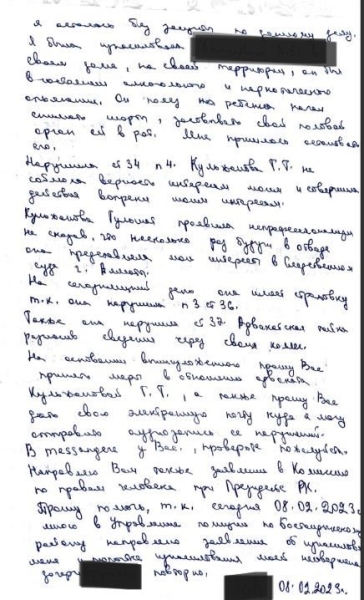 я осталась без защиты по данному делу.
Я была изнасилована
своём доме, на своей территории, он был
в состоянии алкогольного и наркотического
опьянения. Он полез на ребенка начал
снимать шорты, засовывать свой половой
орган ей в рот. Мне пришлось остановить
его.
Нарушила ст 34 п 4. Кульжанова Г.Т. не
соблюла верность интересам моим и совершила
действия вопреки моим интересам.
Кульжанова проявила непрофессионализм
не сказав, что несколько раз будучи в отводе
она представляла мои интересы в Следственном
суде г. Алматы.
На сегодняшний день она имеет страховку
т.к. она нарушила п 3 ст 36.
Также она нарушила ст 37 Адвокатская тайна
разгласив сведения через своих коллег.
На основании вышеизложенного прошу Вас
принять меры в отношении адвоката
Кульжановой Г. Т., а также прошу Вас
дать свою электронную почту куда я могу
отправить аудиозапись ее нарушений.
В messanger у Вас., проверьте пожалуйста.
Направляю Вам также заявление в Комиссию
по правам человека при Президенте РК.
Прошу помочь, т.к. сегодня 08.02.2023г.
мною в Управление полиции по Бостандыкскому
району направлено заявление об изнасиловании
меня и попытке изнасилования моей несовершенно
дочери повторно.
08.02.2023г.